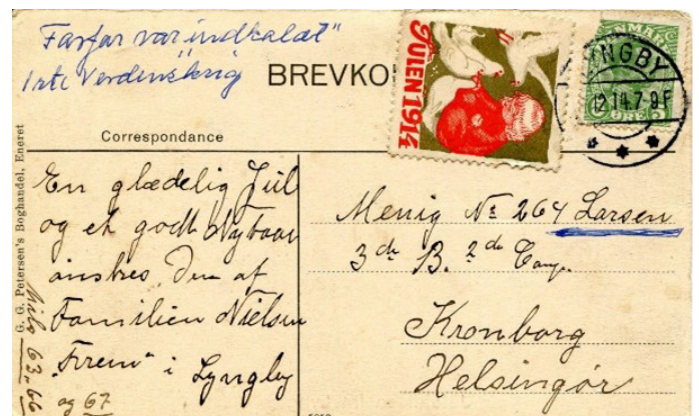 Farfar var indkaldt"
1ste Verdenskrig
BREVKO
JULEN 1914
DANMARK
LYNGBY
12.14.7-9F
ØRE 5
Correspondance
G. G. Petersen's Boghandel, Eneret
En glædelig Jul
og et godt Nytaar
ønskes Dem af
Familien Nielsen
"Frem" i Lyngby
63, 66
og 67
Menig № 264 Larsen
3de B. 2de Comp.
Kronborg
Helsingør